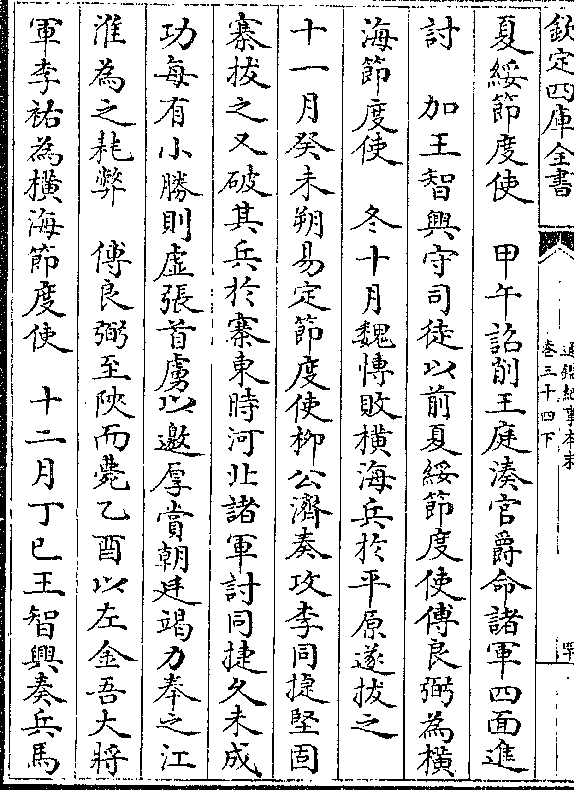 欽定四庫全書
通鑑紀事本末
卷三十四下
夏綏節度使　甲午詔削王庭湊官爵命諸軍四面進
討　加王智興守司徒以前夏綏節度使傅良弼為橫
海節度使　冬十月魏博敗橫海兵於平原遂拔之
十一月癸未朔易定節度使柳公濟奏攻李同捷堅固
寨拔之又破其兵於寨東時河北諸軍討同捷久未成
功每有小勝則虛張首虜以邀厚賞朝廷竭力奉之江
淮為之耗弊　傅良弼至陜而薨乙酉以左金吾大將
軍李祐為橫海節度使　十二月丁巳王智興奏兵馬